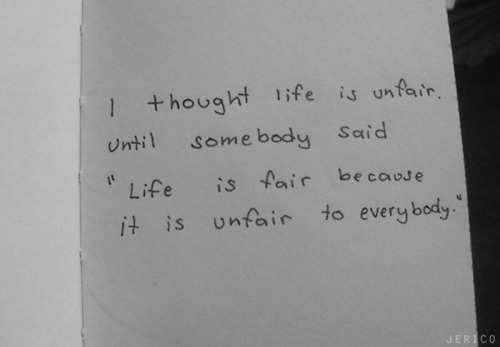 I thought life is unfair.
Until somebody said
"Life is fair because
it is unfair to everybody."
JERICO